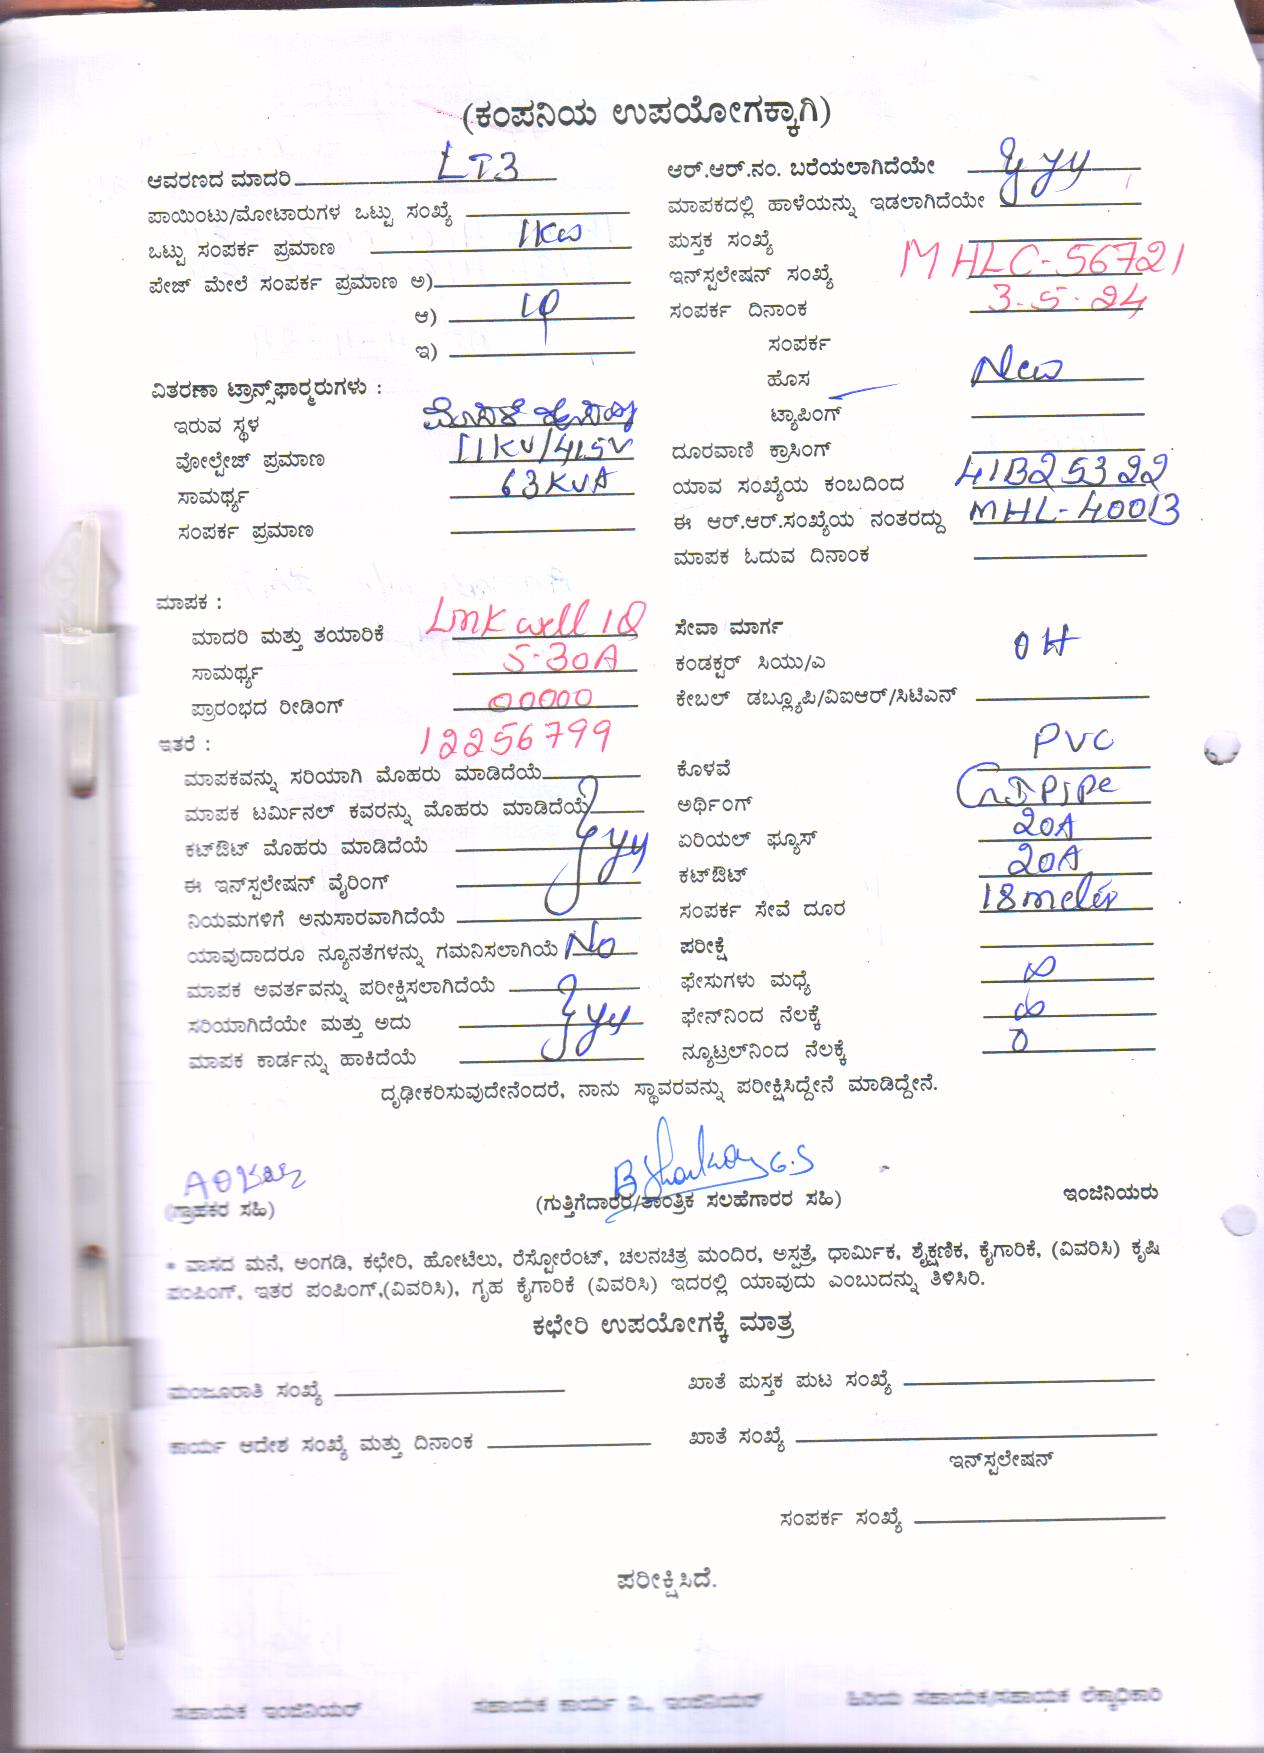 (ಕಂಪನಿಯ ಉಪಯೋಗಕ್ಕಾಗಿ)
ಆವರಣದ ಮಾದರಿ LT3
ಪಾಯಿಂಟು/ಮೋಟಾರುಗಳ ಒಟ್ಟು ಸಂಖ್ಯೆ
ಒಟ್ಟು ಸಂಪರ್ಕ ಪ್ರಮಾಣ 1KW
ಪೇಜ್ ಮೇಲೆ ಸಂಪರ್ಕ ಪ್ರಮಾಣ ಅ)
ಆ) 1φ
ಇ)
ವಿತರಣಾ ಟ್ರಾನ್ಸ್‌ಫಾರ್ಮರುಗಳು :
ಇರುವ ಸ್ಥಳ
ವೋಲ್ಟೇಜ್ ಪ್ರಮಾಣ 11KV/415V
ಸಾಮರ್ಥ್ಯ 63KVA
ಸಂಪರ್ಕ ಪ್ರಮಾಣ
ಆರ್.ಆರ್.ನಂ. ಬರೆಯಲಾಗಿದೆಯೇ
ಮಾಪಕದಲ್ಲಿ ಹಾಳೆಯನ್ನು ಇಡಲಾಗಿದೆಯೇ
ಪುಸ್ತಕ ಸಂಖ್ಯೆ
ಇನ್‌ಸ್ಟಲೇಷನ್ ಸಂಖ್ಯೆ MHLC-56721
ಸಂಪರ್ಕ ದಿನಾಂಕ 3-5-24
ಸಂಪರ್ಕ
ಹೊಸ New
ಟ್ಯಾಪಿಂಗ್
ದೂರವಾಣಿ ಕ್ರಾಸಿಂಗ್
ಯಾವ ಸಂಖ್ಯೆಯ ಕಂಬದಿಂದ 41B25322
ಈ ಆರ್.ಆರ್.ಸಂಖ್ಯೆಯ ನಂತರದ್ದು MHL-40013
ಮಾಪಕ ಓದುವ ದಿನಾಂಕ
ಮಾಪಕ :
ಮಾದರಿ ಮತ್ತು ತಯಾರಿಕೆ
ಸಾಮರ್ಥ್ಯ 5-30A
ಪ್ರಾರಂಭದ ರೀಡಿಂಗ್ 00000
ಇತರೆ : 12256799
ಮಾಪಕವನ್ನು ಸರಿಯಾಗಿ ಮೊಹರು ಮಾಡಿದೆಯೆ
ಮಾಪಕ ಟರ್ಮಿನಲ್ ಕವರನ್ನು ಮೊಹರು ಮಾಡಿದೆಯೆ
ಕಟ್‌ಔಟ್ ಮೊಹರು ಮಾಡಿದೆಯೆ
ಈ ಇನ್‌ಸ್ಟಲೇಷನ್ ವೈರಿಂಗ್
ನಿಯಮಗಳಿಗೆ ಅನುಸಾರವಾಗಿದೆಯೆ
ಯಾವುದಾದರೂ ನ್ಯೂನತೆಗಳನ್ನು ಗಮನಿಸಲಾಗಿಯೆ No
ಮಾಪಕ ಅವರ್ತವನ್ನು ಪರೀಕ್ಷಿಸಲಾಗಿದೆಯೆ
ಸರಿಯಾಗಿದೆಯೇ ಮತ್ತು ಅದು
ಮಾಪಕ ಕಾರ್ಡನ್ನು ಹಾಕಿದೆಯೆ
ಸೇವಾ ಮಾರ್ಗ
ಕಂಡಕ್ಟರ್ ಸಿಯು/ಎ OH
ಕೇಬಲ್ ಡಬ್ಲ್ಯೂಪಿ/ವಿಐಆರ್/ಸಿಟಿಎನ್
ಕೊಳವೆ PVC
ಅರ್ಥಿಂಗ್ GI Pipe
ಏರಿಯಲ್ ಫ್ಯೂಸ್ 20A
ಕಟ್‌ಔಟ್ 20A
ಸಂಪರ್ಕ ಸೇವೆ ದೂರ 18meter
ಪರೀಕ್ಷೆ
ಫೇಸುಗಳು ಮಧ್ಯೆ ∞
ಫೇನ್‌ನಿಂದ ನೆಲಕ್ಕೆ ∞
ನ್ಯೂಟ್ರಲ್‌ನಿಂದ ನೆಲಕ್ಕೆ 0
ದೃಢೀಕರಿಸುವುದೇನೆಂದರೆ, ನಾನು ಸ್ಥಾವರವನ್ನು ಪರೀಕ್ಷಿಸಿದ್ದೇನೆ ಮಾಡಿದ್ದೇನೆ.
(ಗ್ರಾಹಕರ ಸಹಿ)
(ಗುತ್ತಿಗೆದಾರರ/ತಾಂತ್ರಿಕ ಸಲಹೆಗಾರರ ಸಹಿ)
ಇಂಜಿನಿಯರು
* ವಾಸದ ಮನೆ, ಅಂಗಡಿ, ಕಛೇರಿ, ಹೋಟೆಲು, ರೆಸ್ಟೋರೆಂಟ್, ಚಲನಚಿತ್ರ ಮಂದಿರ, ಅಸ್ಪತ್ರೆ, ಧಾರ್ಮಿಕ, ಶೈಕ್ಷಣಿಕ, ಕೈಗಾರಿಕೆ, (ವಿವರಿಸಿ) ಕೃಷಿ
ಪಂಪಿಂಗ್, ಇತರ ಪಂಪಿಂಗ್,(ವಿವರಿಸಿ), ಗೃಹ ಕೈಗಾರಿಕೆ (ವಿವರಿಸಿ) ಇದರಲ್ಲಿ ಯಾವುದು ಎಂಬುದನ್ನು ತಿಳಿಸಿರಿ.
ಕಛೇರಿ ಉಪಯೋಗಕ್ಕೆ ಮಾತ್ರ
ಮಂಜೂರಾತಿ ಸಂಖ್ಯೆ
ಖಾತೆ ಪುಸ್ತಕ ಪುಟ ಸಂಖ್ಯೆ
ಕಾರ್ಯ ಆದೇಶ ಸಂಖ್ಯೆ ಮತ್ತು ದಿನಾಂಕ
ಖಾತೆ ಸಂಖ್ಯೆ
ಇನ್‌ಸ್ಟಲೇಷನ್
ಸಂಪರ್ಕ ಸಂಖ್ಯೆ
ಪರೀಕ್ಷಿಸಿದೆ.
ಸಹಾಯಕ ಇಂಜಿನಿಯರ್
ಸಹಾಯಕ ಕಾರ್ಯ ನಿ., ಇಂಜಿನಿಯರ್
ಹಿರಿಯ ಸಹಾಯಕ/ಸಹಾಯಕ ಲೆಕ್ಕಾಧಿಕಾರಿ